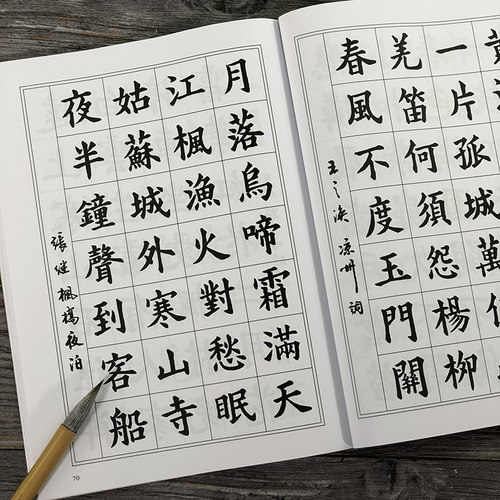 月落烏啼霜滿天
江楓漁火對愁眠
姑蘇城外寒山寺
夜半鐘聲到客船
張继楓橋夜泊
70
一片孤城萬
羌笛何須怨楊柳
春風不度玉門關
王之渙凉州詞